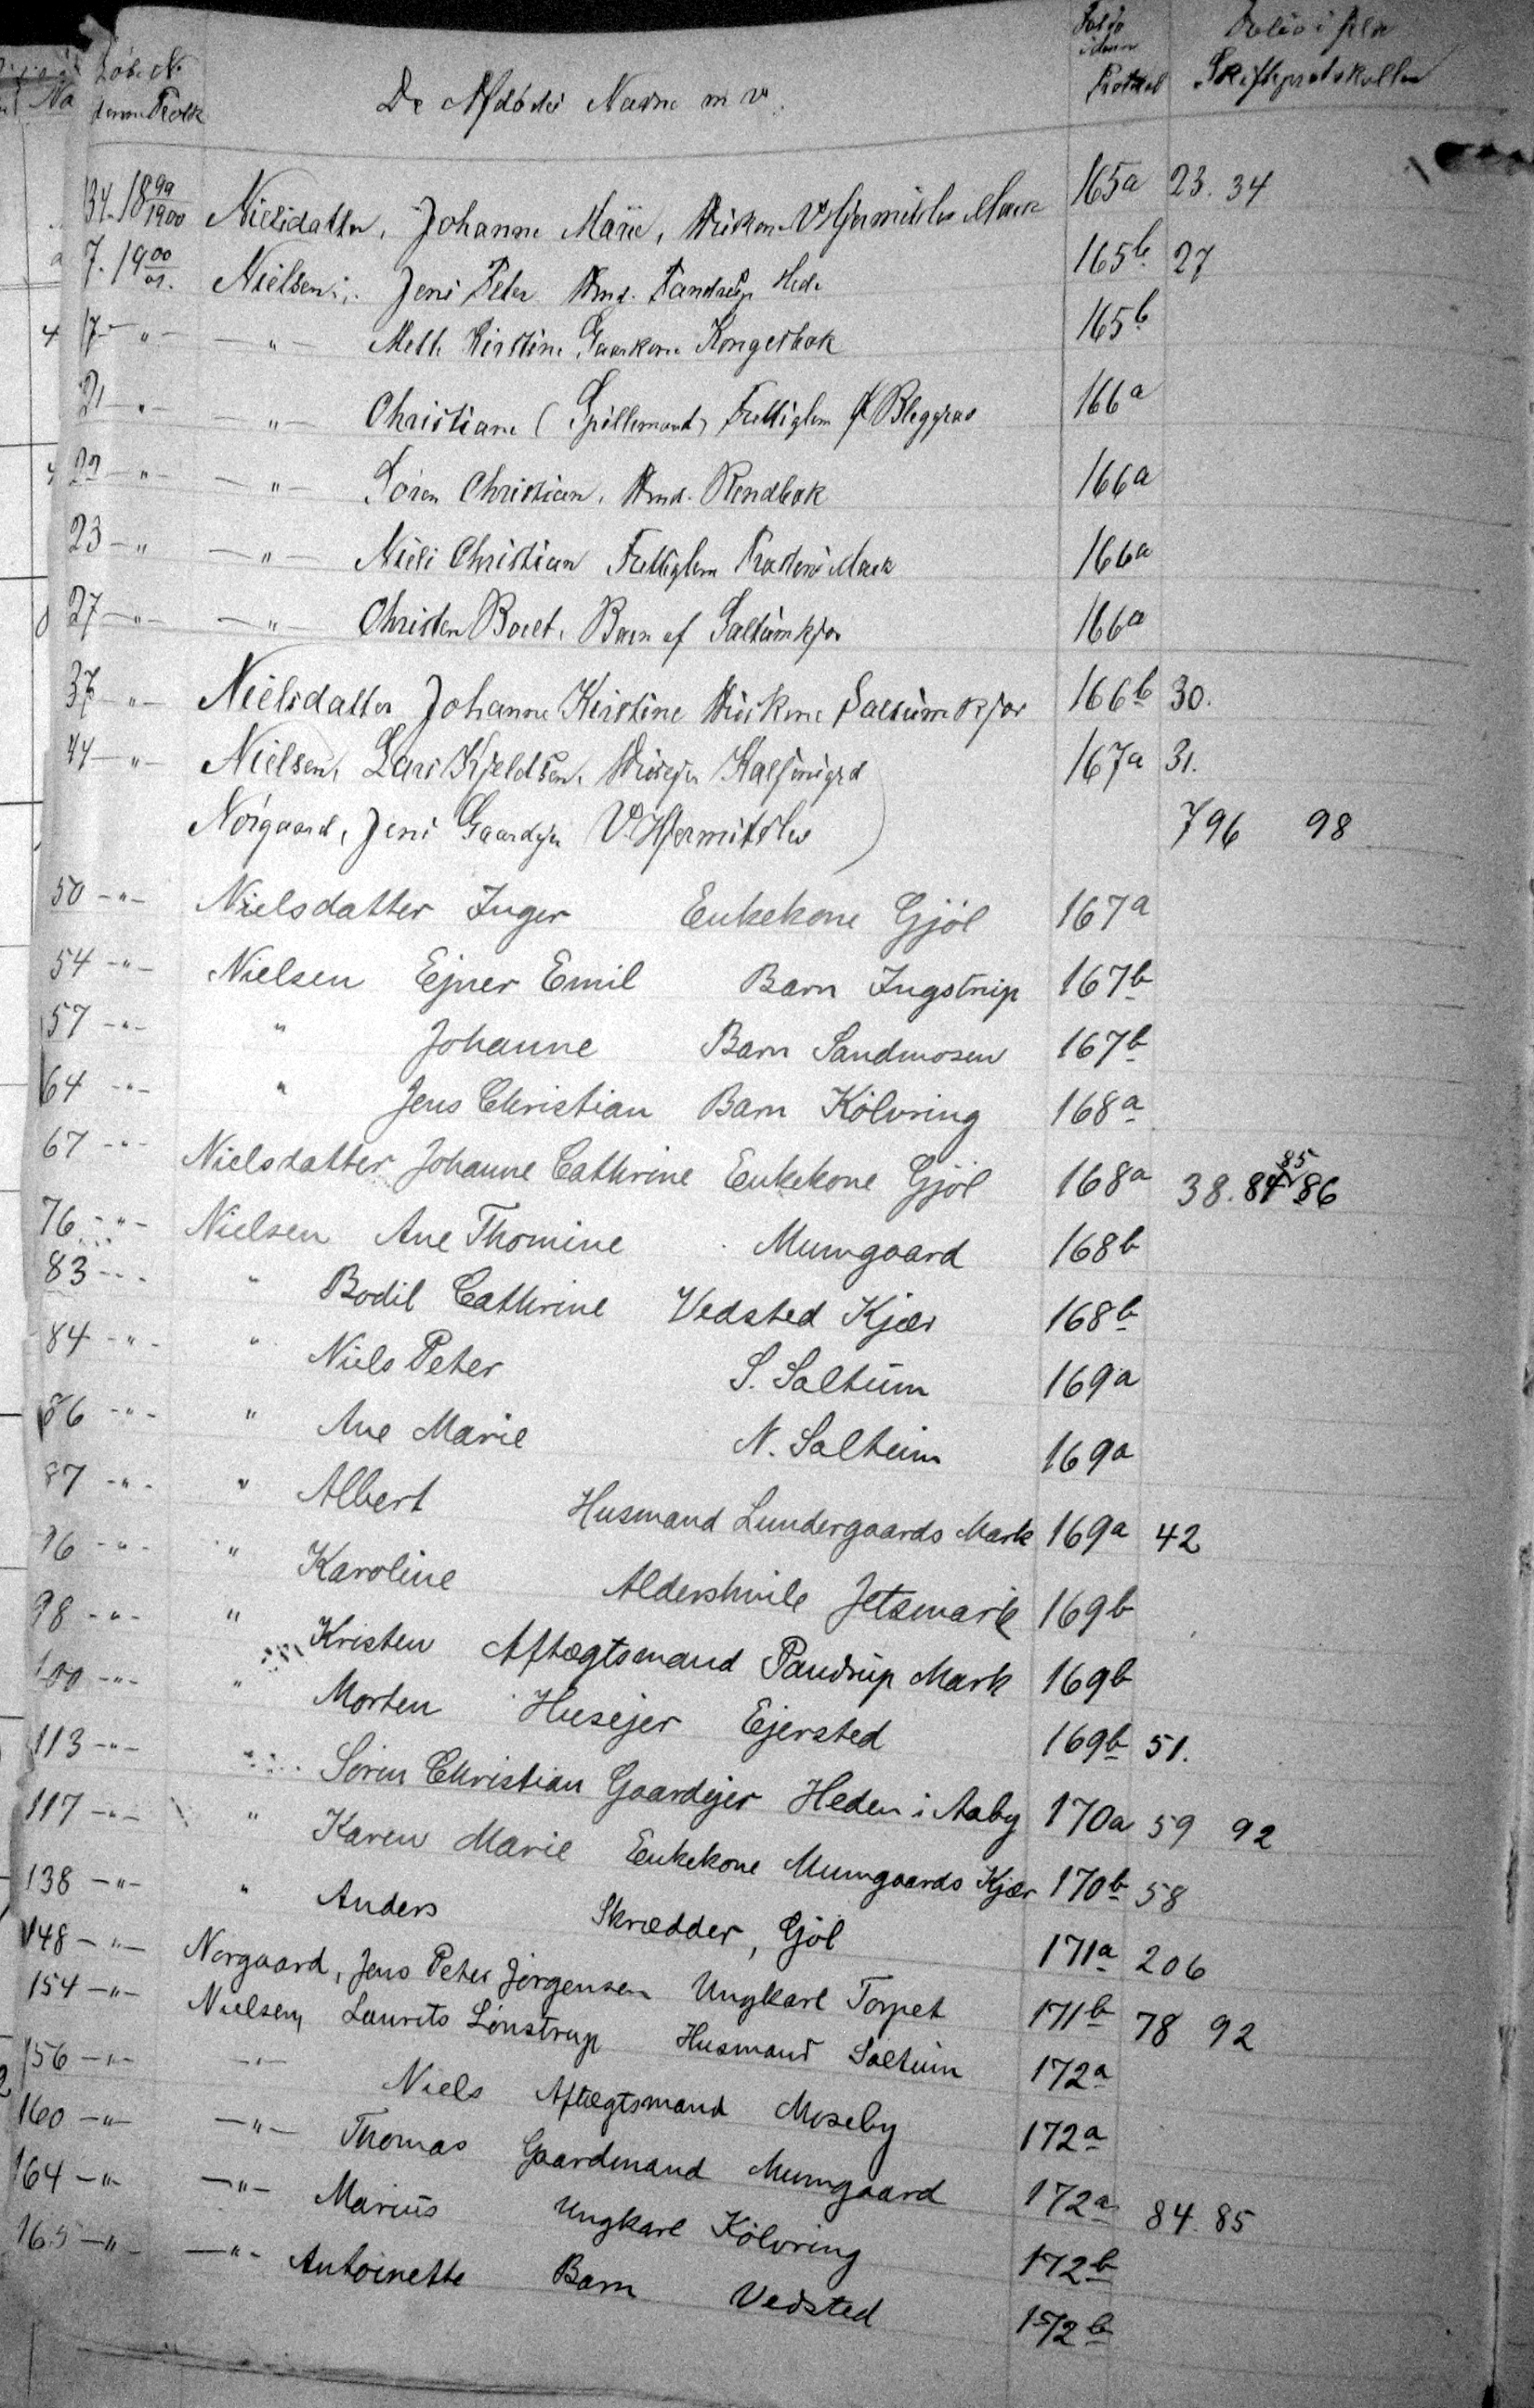 Løbe N. De Afdødes Navne m v. Folio i denne Protokol Folio i
denne Protk Skifteprotokollen
134. 1899/1900 Nielsdatter, Johanne Marie, Huskone V Hjermitslev Mark 165a 23. 34
7. 1900/01. Nielsen, Jens Peter Hmd. Pandrup Hede 165b 27
17 - " - - " - Mette Kirstine, Gaardkone Kongesbak 165b
21 - " - - " - Christiane (Spillemand) Fattiglem Bleggrav 166a
22 - " - - " - Søren Christian, Hmd. Rendbæk 166a
23 - " - " - Niels Christian Fattiglem Mark 166a
27 - " - - " - Christen Boelt, Barn af Saltumkjær 166a
37 - " - Nielsdatter Johanne Kirstine Huskone Saltumkjær 166b 30.
44 - " - Nielsen, Lars Kjeldsen, Husejer 167a 31.
Nørgaard, Jens Gaardejer V. Hjermitslev 796 98
50 - " - Nielsdatter Inger Enkekone Gjöl 167a
54 - " - Nielsen Ejner Emil Barn Ingstrup 167b
57 - " - " Johanne Barn Sandmosen 167b
64 - " - " Jens Christian Barn Kölvring 168a
67 - " - Nielsdatter Johanne Cathrine Enkekone Gjöl 168a 38. 84 85 86
76 - " - Nielsen Ane Thomine Mumgaard 168b
83 - " - " Bodil Cathrine Vedsted Kjær 168b
84 - " - " Niels Peter S. Saltum 169a
86 - " - " Ane Marie N. Saltum 169a
87 - " - " Albert Husmand Lundergaards Mark 169a 42
96 - " - " Karoline Aldershvile Jetsmark 169b
98 - " - " Kristen Aftægtsmand Pandrup Mark 169b
100 - " - " Morten Husejer Ejersted 169b 51.
113 - " - " Sören Christian Gaardejer Heden i Aaby 170a 59 92
117 - " - " Karen Marie Enkekone Mumgaards Kjær 170b 58
138 - " - " Anders Skrædder, Gjöl 171a 206
148 - " - Norgaard, Jens Peter Jörgensen Ungkarl Torpet 171b 78 92
154 - " - Nielsen, Laurits Lönstrup Husmand Saltum 172a
156 - " - - " - Niels Aftægtsmand Moseby 172a
160 - " - - " - Thomas Gaardmand Mumgaard 172a 84. 85
164 - " - - " - Marius Ungkarl Kölvring 172b
165 - " - - " - Antoinette Barn Vedsted 172b